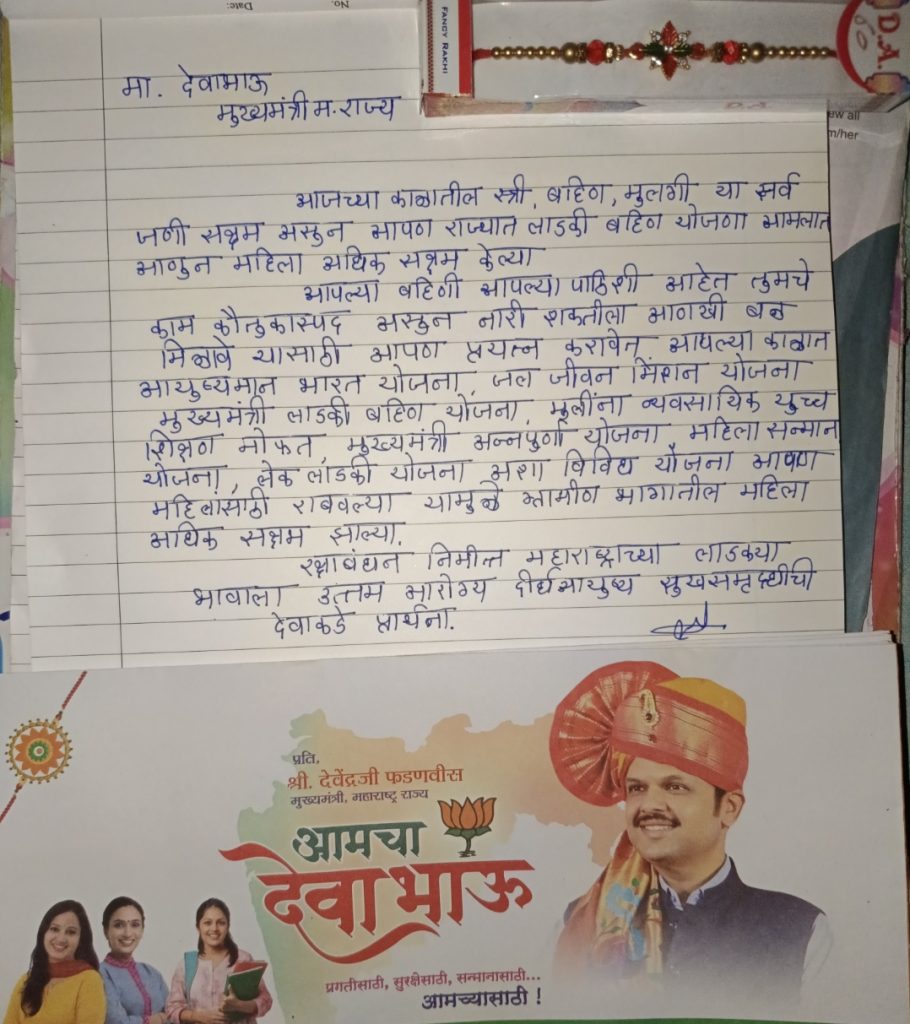 Date:
No.
FANCY RAKHI
D.A.
60
ew all
m/her
मा. देवाभाऊ
मुख्यमंत्री म. राज्य
आजच्या काळातील स्त्री, बहिण, मुलगी या सर्व
जणी सक्षम असुन आपण राज्यात लाडकी बहिण योजना अमलात
आणुन महिला अधिक सक्षम केल्या
आपल्या बहिणी आपल्या पाठिशी आहेत तुमचे
काम कौतुकास्पद असुन नारी शक्तीला आणखी बळ
मिळावे यासाठी आपण प्रयत्न करावेत आपल्या काळात
आयुष्यमान भारत योजना, जल जीवन मिशन योजना
मुख्यमंत्री लाडकी बहिण योजना, मुलींना व्यवसायिक उच्च
शिक्षण मोफत, मुख्यमंत्री अन्नपुर्णा योजना महिला सन्मान
योजना, लेक लाडकी योजना अशा विविध योजना आपण
महिलांसाठी राबवल्या यामुळे ग्रामीण भागातील महिला
अधिक सक्षम झाल्या.
रक्षाबंधन निमीत्त महाराष्ट्राच्या लाडक्या
भावाला उत्तम आरोग्य दीर्घआयुष्य सुखसमृद्धीची
देवाकडे प्रार्थना.
प्रति,
श्री. देवेंद्रजी फडणवीस
मुख्यमंत्री, महाराष्ट्र राज्य
आमचा
देवाभाऊ
प्रगतीसाठी, सुरक्षेसाठी, सन्मानासाठी...
आमच्यासाठी !